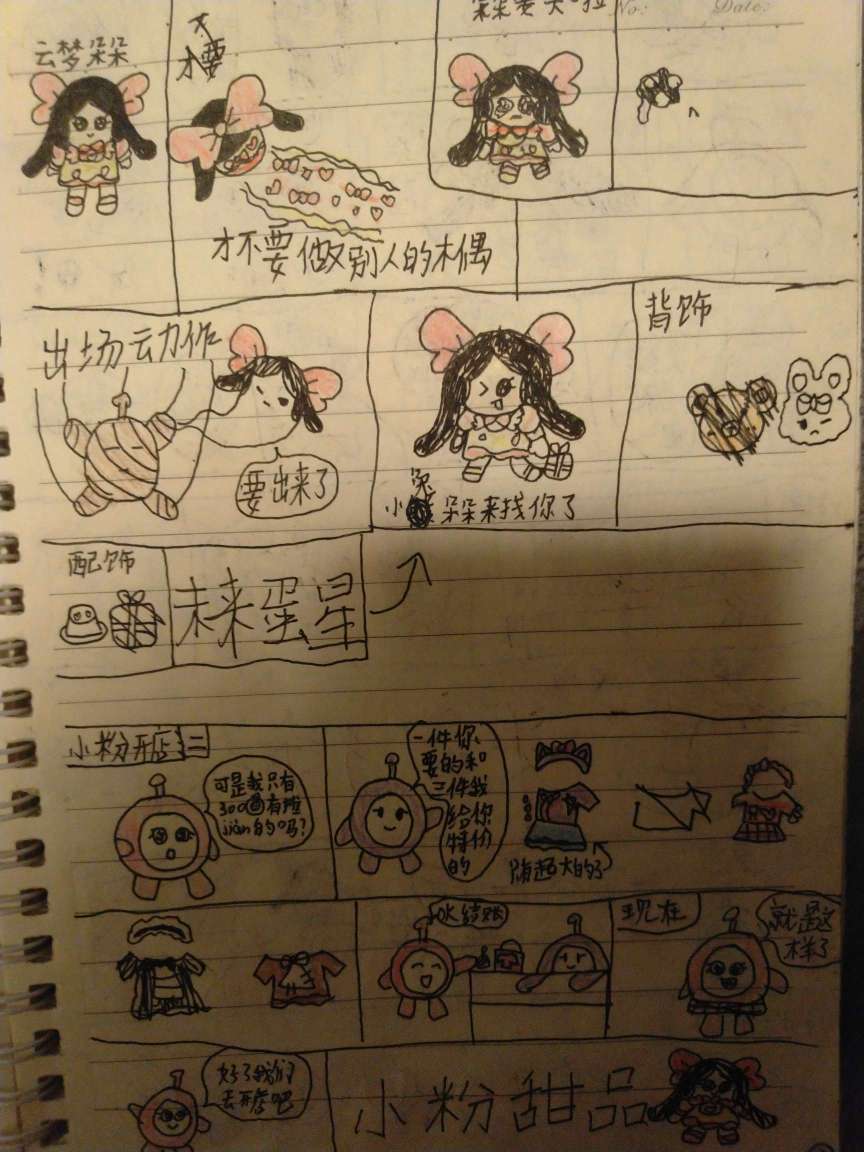 No:
Date:
云梦朵朵
不
才要
才不要做别人的木偶
出场云力作
要出来了
兔
小 朵朵来找你了
背饰
配饰
未来蛋星
小粉开店二
可是我只有
300
jiàn的吗?
一件你
要的和
三件我
给你
特价
的
超大的了
OK结账
现在
就是这
样了
好了我们
去开店吧
小粉甜品